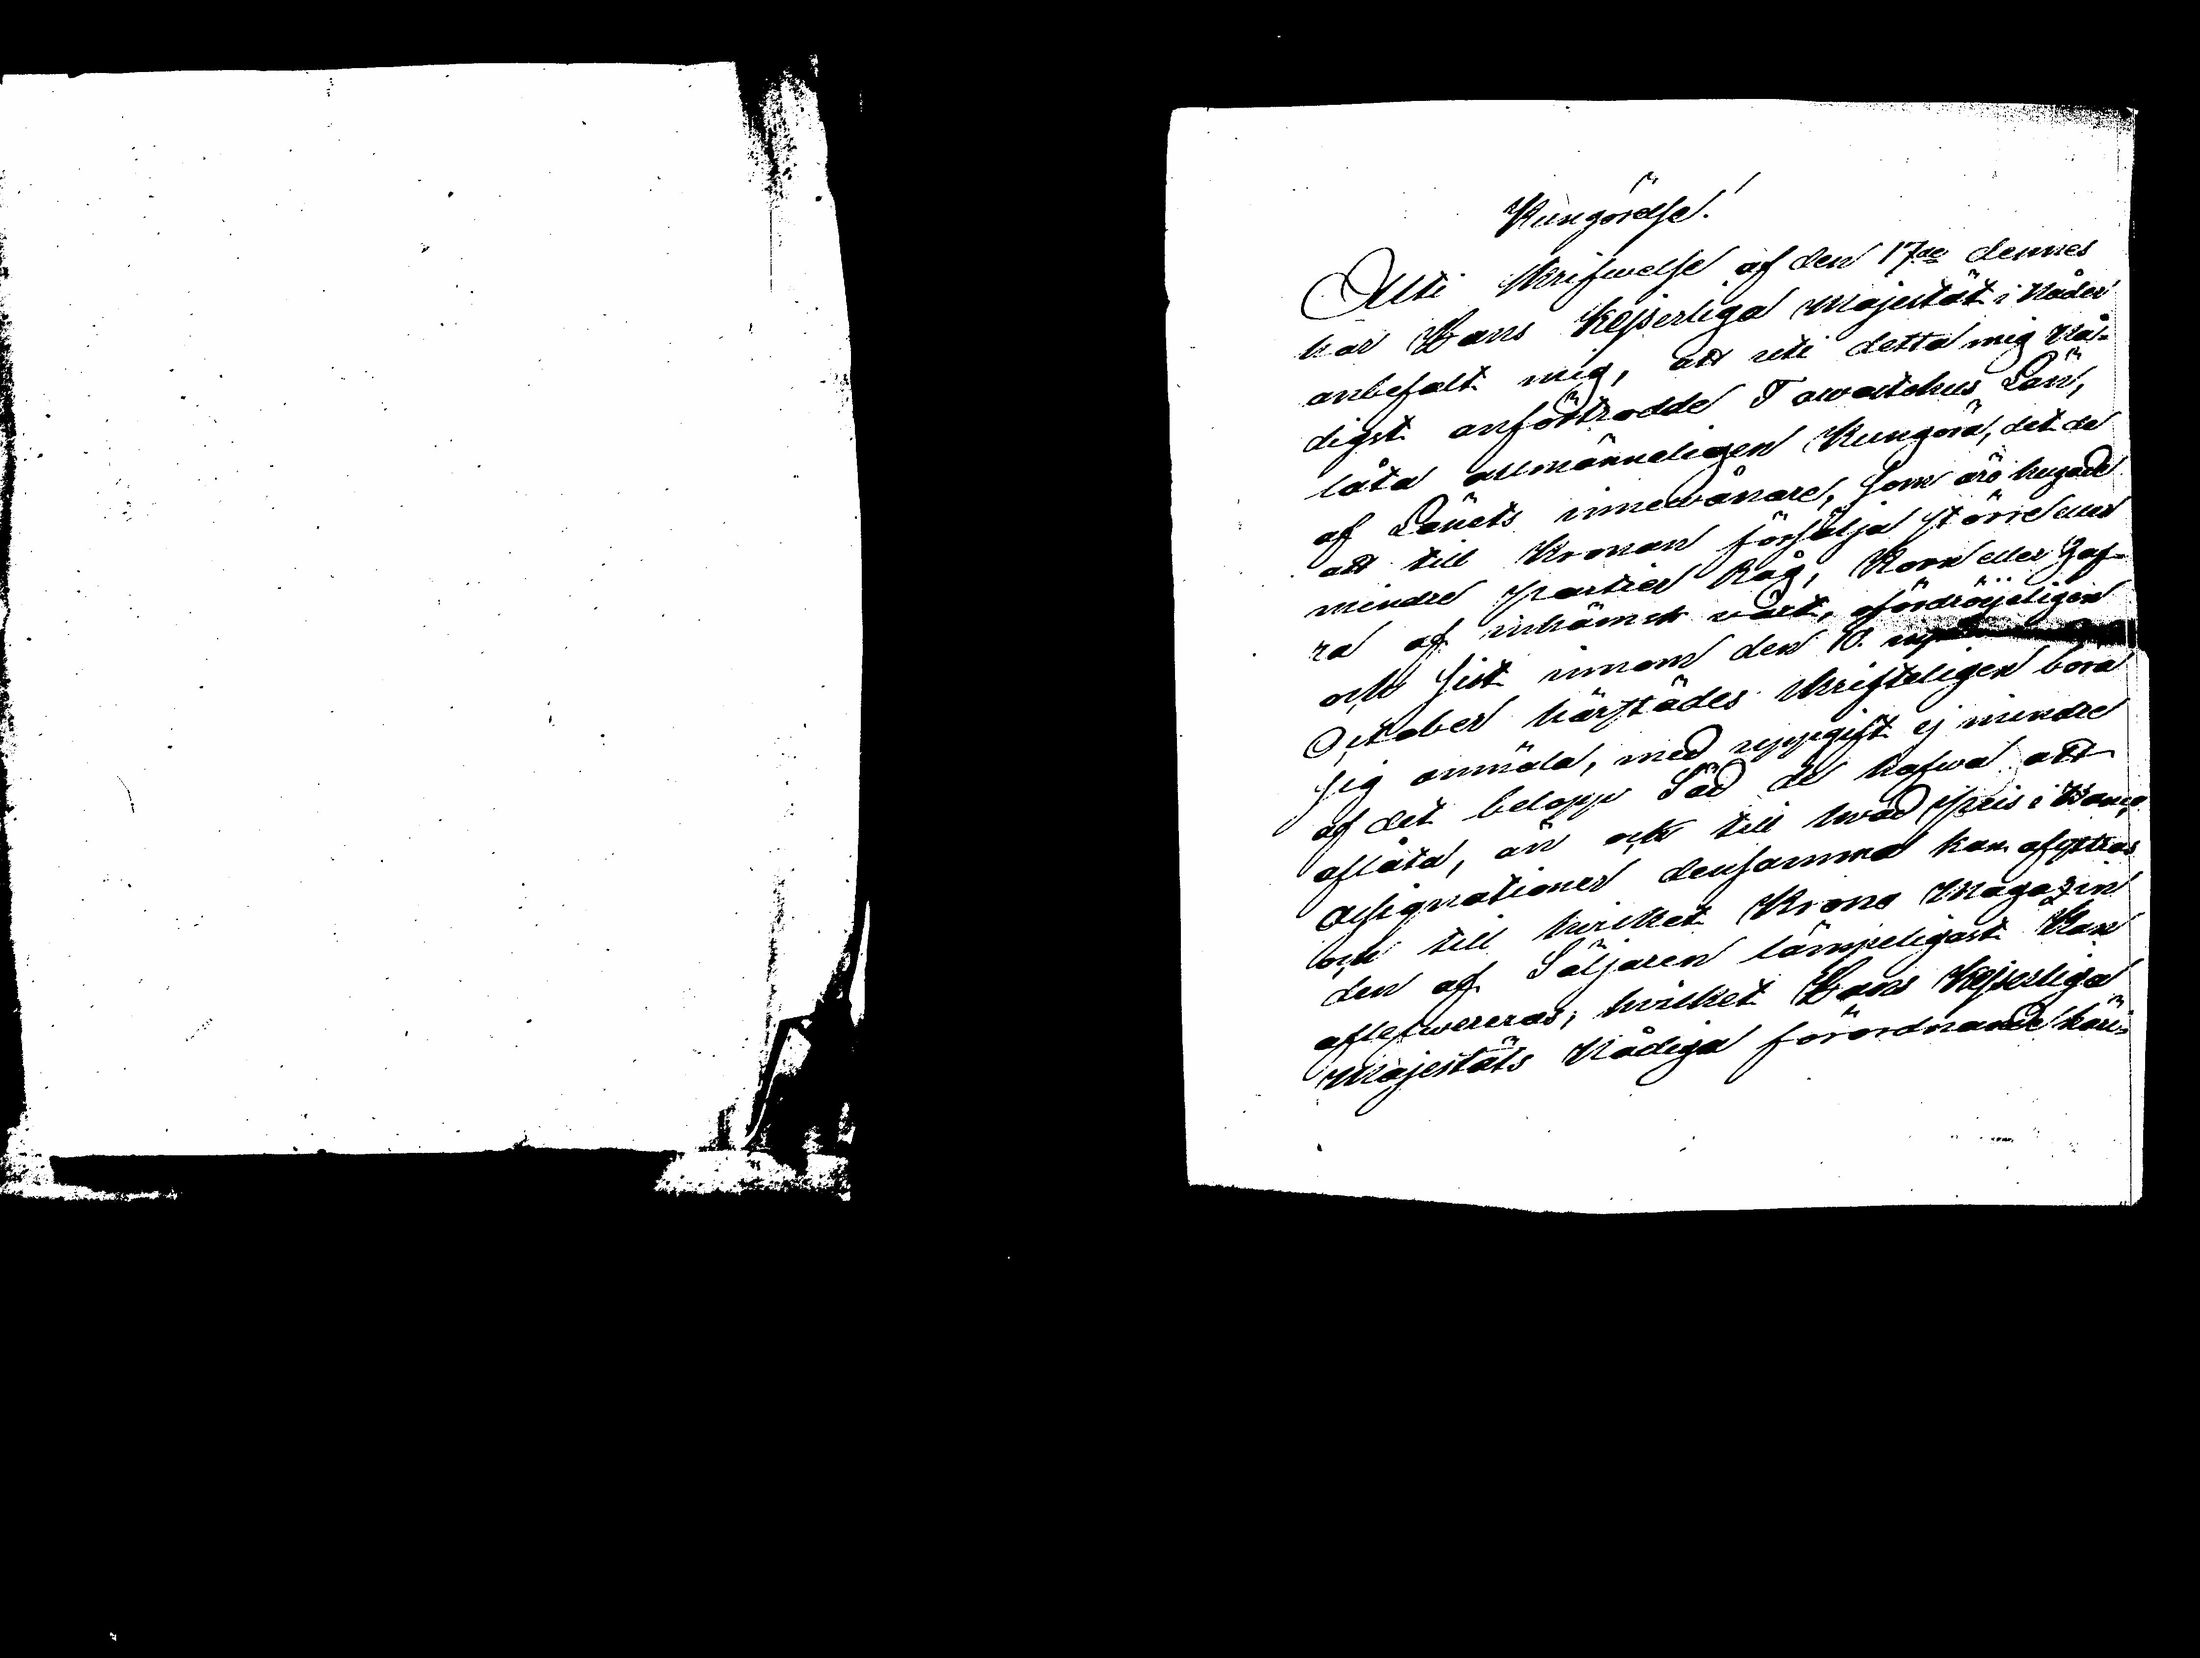 Kungörelse!
Uti skrifwelse af den 17de dennes
har Hans Kejserliga Majestät i Nåder
anbefalt mig, att uti detta mig Nå-
digst anförtrodde Tawastehus Län,
låta allmänneligen Kungöra, det de
af Länets innewånare, som äro hugade
att till Kronan försälja större eller
mindre partier Råg, Korn eller Haf-
ra af inhämsk växt, ofördröjeligen
och sist innom den 10.
October härstädes skrifteligen böra
sig anmäla, med uppgift ej mindre
af det belopp Säd de hafwa att
aflåta, än ock till hwad pris i Banco
Assignationer densamma kan aflåtas
och till hvilket Krono Magazin
den af Säljaren lämpeligast kan
aflefwereras; hvilket Hans Kejserliga
Majestäts Nådiga förordnande här-